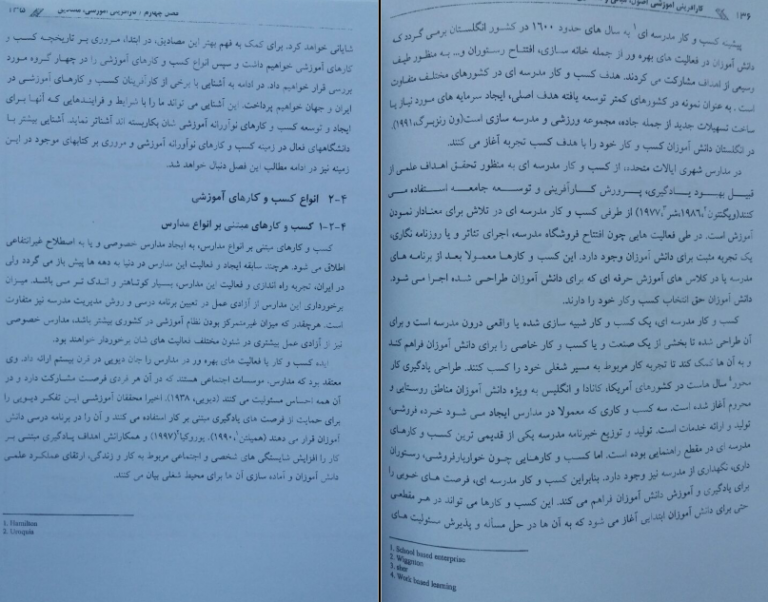 فصل چهارم : ۱۳۵
شایانی خواهد کرد. برای کمک به فهم بهتر این مصادیق، در ابتدا، مروری بر تاریخچه کسب و
کارهای آموزشی خواهیم داشت و سپس انواع کسب و کارهای آموزشی را در چهار گروه مورد
بررسی قرار خواهیم داد. در ادامه به آشنایی با برخی از کارآفرینان کسب و کارهای آموزشی در
ایران و جهان خواهیم پرداخت. این آشنایی می تواند ما را با شرایط و فرایندهایی که آنها برای
ایجاد و توسعه کسب و کارهای نوآورانه آموزشی شان بکاربسته اند آشناتر نماید. آشنایی بیشتر با
دانشگاههای فعال در زمینه کسب و کارهای نوآورانه آموزشی و مروری بر کتابهای موجود در این
زمینه نیز در ادامه مطالب این فصل دنبال خواهد شد.
۲-۴ انواع کسب و کارهای آموزشی
۱-۲-۴ کسب و کارهای مبتنی بر انواع مدارس
کسب و کارهای مبتنی بر انواع مدارس، به ایجاد مدارس خصوصی و یا به اصطلاح غیرانتفاعی
اطلاق می شود. هرچند، سابقه ایجاد و فعالیت این مدارس در دنیا به دهه ها پیش باز می گردد ولی
در ایران، تجربه راه اندازی و فعالیت این مدارس، بسیار کوتاهتر و اندک تر می باشد. میزان
برخورداری این مدارس از آزادی عمل در تعیین برنامه درسی و روش مدیریت مدرسه نیز متفاوت
است. هرچقدر که میزان غیرمتمرکز بودن نظام آموزشی در کشوری بیشتر باشد، مدارس خصوصی
نیز از آزادی عمل بیشتری در شئون مختلف فعالیت های شان برخوردار خواهند بود.
ایده کسب و کار یا فعالیت های بهره ور در مدارس را جان دیویی در قرن بیستم ارائه داد. وی
معتقد بود که مدارس، موسسات اجتماعی هستند که در آن هر فردی فرصت مشارکت دارد و در
آن همه احساس مسئولیت می کنند (دیویی، ۱۹۳۸). اخیرا محققان آموزشی این تفکر دیویی را
برای حمایت از فرصت های یادگیری مبتنی بر کار استفاده می کنند و آن را در برنامه درسی دانش
آموزان قرار می دهند (همیلتن۱، ۱۹۹۰). یوروکیا۲(۱۹۹۷) و همکارانش اهداف یادگیری مبتنی بر
کار را افزایش شایستگی های شخصی و اجتماعی مربوط به کار و زندگی، ارتقای عملکرد علمی
دانش آموزان و آماده سازی آن ها برای محیط شغلی بیان می کنند.
1. Hamilton
2. Uroquia
۱۳۶ کارآفرینی آموزشی (اصول، مبانی و
پیشینه کسب و کار مدرسه ای۱ به سال های حدود ۱۶۰۰ در کشور انگلستان برمی گردد که
دانش آموزان در فعالیت های بهره ور از جمله خانه سازی، افتتاح رستوران و... به منظور طیف
رسمی از اهداف مشارکت می کردند. هدف کسب و کار مدرسه ای در کشورهای مختلف متفاوت
است. به عنوان نمونه در کشورهای کمتر توسعه یافته هدف اصلی، ایجاد سرمایه های مورد نیاز یا
ساخت تسهیلات جدید از جمله جاده، مجموعه ورزشی و مدرسه سازی است(ون رنزبرگ، ۱۹۹۱).
در انگلستان دانش آموزان کسب و کار خود را با هدف کسب تجربه آغاز می کنند.
در مدارس شهری ایالات متحده، از کسب و کار مدرسه ای به منظور تحقق اهداف علمی از
قبیل بهبود یادگیری، پرورش کارآفرینی و توسعه جامعه استفاده می
کنند(ویگنتون۲، ۱۹۸۶،شر۳، ۱۹۷۷) از طرفی کسب و کار مدرسه ای در تلاش برای معنادار نمودن
آموزش است. در طی فعالیت هایی چون افتتاح فروشگاه مدرسه، اجرای تئاتر و یا روزنامه نگاری،
یک تجربه مثبت برای دانش آموزان وجود دارد. این کسب و کارها معمولا بعد از برنامه های
مدرسه یا در کلاس های آموزش حرفه ای که برای دانش آموزان طراحی شده اجرا می شود.
دانش آموزان حق انتخاب کسب وکار خود را دارند.
کسب و کار مدرسه ای، یک کسب و کار شبیه سازی شده یا واقعی درون مدرسه است و برای
آن طراحی شده تا بخشی از یک صنعت و یا کسب و کار خاصی را برای دانش آموزان فراهم کند
و به آن ها کمک کند تا تجربه کار مربوط به مسیر شغلی خود را کسب کنند. طراحی یادگیری کار
محور۴ سال هاست در کشورهای آمریکا، کانادا و انگلیس به ویژه دانش آموزان مناطق روستایی و
محروم آغاز شده است. سه کسب و کاری که معمولا در مدارس ایجاد می شود خرده فروشی،
تولید و ارائه خدمات است. تولید و توزیع خبرنامه مدرسه یکی از قدیمی ترین کسب و کارهای
مدرسه ای در مقطع راهنمایی بوده است. اما کسب و کارهایی چون خواربارفروشی، رستوران
داری، نگهداری از مدرسه نیز وجود دارد. بنابراین کسب و کار مدرسه ای، فرصت های خوبی را
برای یادگیری و آموزش دانش آموزان فراهم می کند. این کسب و کارها می تواند در هر مقطعی
حتی برای دانش آموزان ابتدایی آغاز می شود که به آن ها در حل مسأله و پذیرش مسئولیت های
1. School based enterprise
2. Wiggnton
3. sher
4. Work based learning